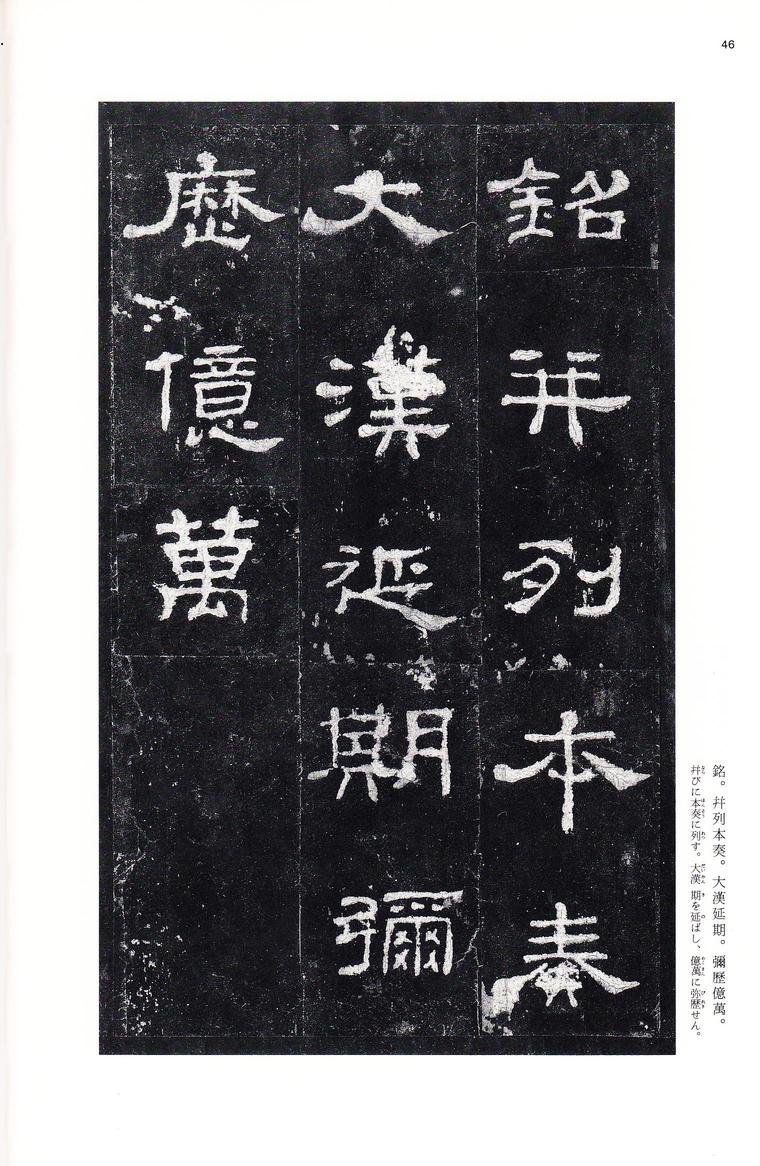 46
銘并列本奏
大漢延期彌
歷億萬
銘。幷列本奏。大漢延期。彌歷億萬。
幷びに本奏に列す。大漢 期を延ばし、億萬に弥歴せん。